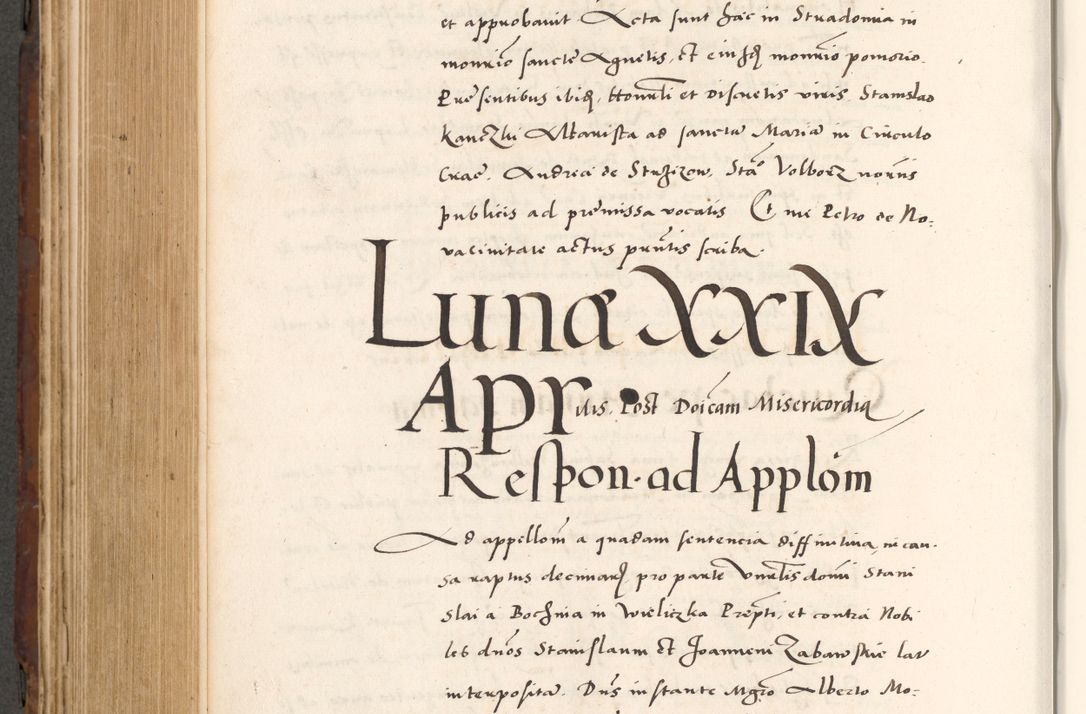 et approbavit Acta sunt hæc in Stradomia in
monrio sancte Agnetis, et eiusdem monrio pomorio.
Presentibus ibidem, Honorabili et Discretis viris Stanislao
Kanczki Altarista ad sanctam Mariam in Circulo
Crac. Andrea de Strzizow, Stao Volborz notariis
publicis ad premissa vocatis Et me Petro de No-
vacivitate actus pruntis scriba.
Lunæ XXIX
Aprilis. Post Doicam Misericordia
Respon. ad Applom
Ad appellom a quadam sentencia diffinitiva, in cau-
sa raptus decimarum, pro parte Vnrlis domi Stani
slai a Bochnia in Wieliczka Prepti, et contra Nobi
les dnos Stanislaum et Joannem Zabawskie lat
interposita. Dns instante Mgro Alberto Mo-